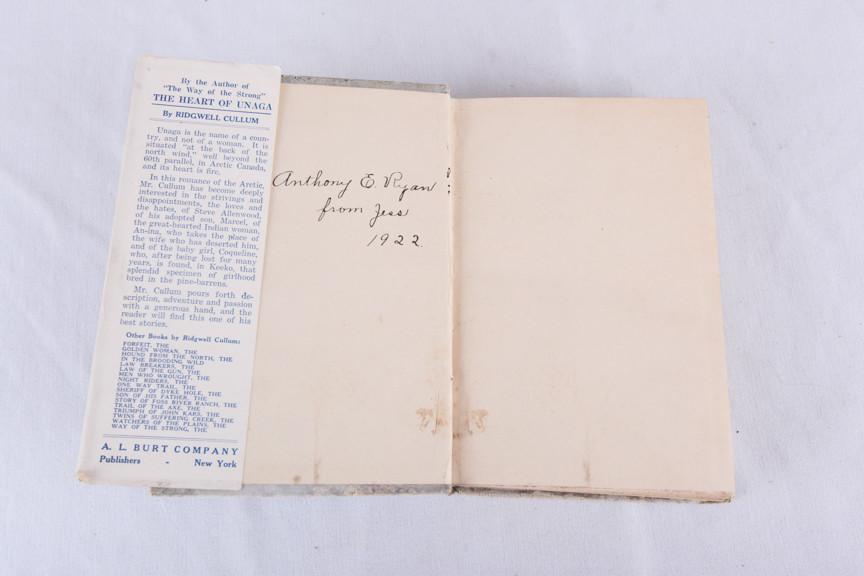 By the Author of
"The Way of the Strong"
THE HEART OF UNAGA
By RIDGWELL CULLUM
Unaga is the name of a coun-
try, and not of a woman. It is
situated "at the back of the
north wind," well beyond the
60th parallel, in Arctic Canada,
and its heart is fire.
In this romance of the Arctic,
Mr. Cullum has become deeply
interested in the strivings and
disappointments, the loves and
the hates, of Steve Allenwood,
of his adopted son, Marcel, of
the great-hearted Indian woman,
An-ina, who takes the place of
the wife who has deserted him,
and of the baby girl, Coqueline,
who, after being lost for many
years, is found, in Keeko, that
splendid specimen of girlhood
bred in the pine-barrens.
Mr. Cullum pours forth de-
scription, adventure and passion
with a generous hand, and the
reader will find this one of his
best stories.
Other Books by Ridgwell Cullum:
FORFEIT, THE
GOLDEN WOMAN, THE
HOUND FROM THE NORTH, THE
IN THE BROODING WILD
LAW BREAKERS, THE
LAW OF THE GUN, THE
MEN WHO WROUGHT, THE
NIGHT RIDERS, THE
ONE WAY TRAIL, THE
SHERIFF OF DYKE HOLE, THE
SON OF HIS FATHER, THE
STORY OF FOSS RIVER RANCH, THE
TRAIL OF THE AXE, THE
TRIUMPH OF JOHN KARS, THE
TWINS OF SUFFERING CREEK, THE
WATCHERS OF THE PLAINS, THE
WAY OF THE STRONG, THE
A. L. BURT COMPANY
Publishers - New York
Anthony E. Ryan
from Jess
1922.